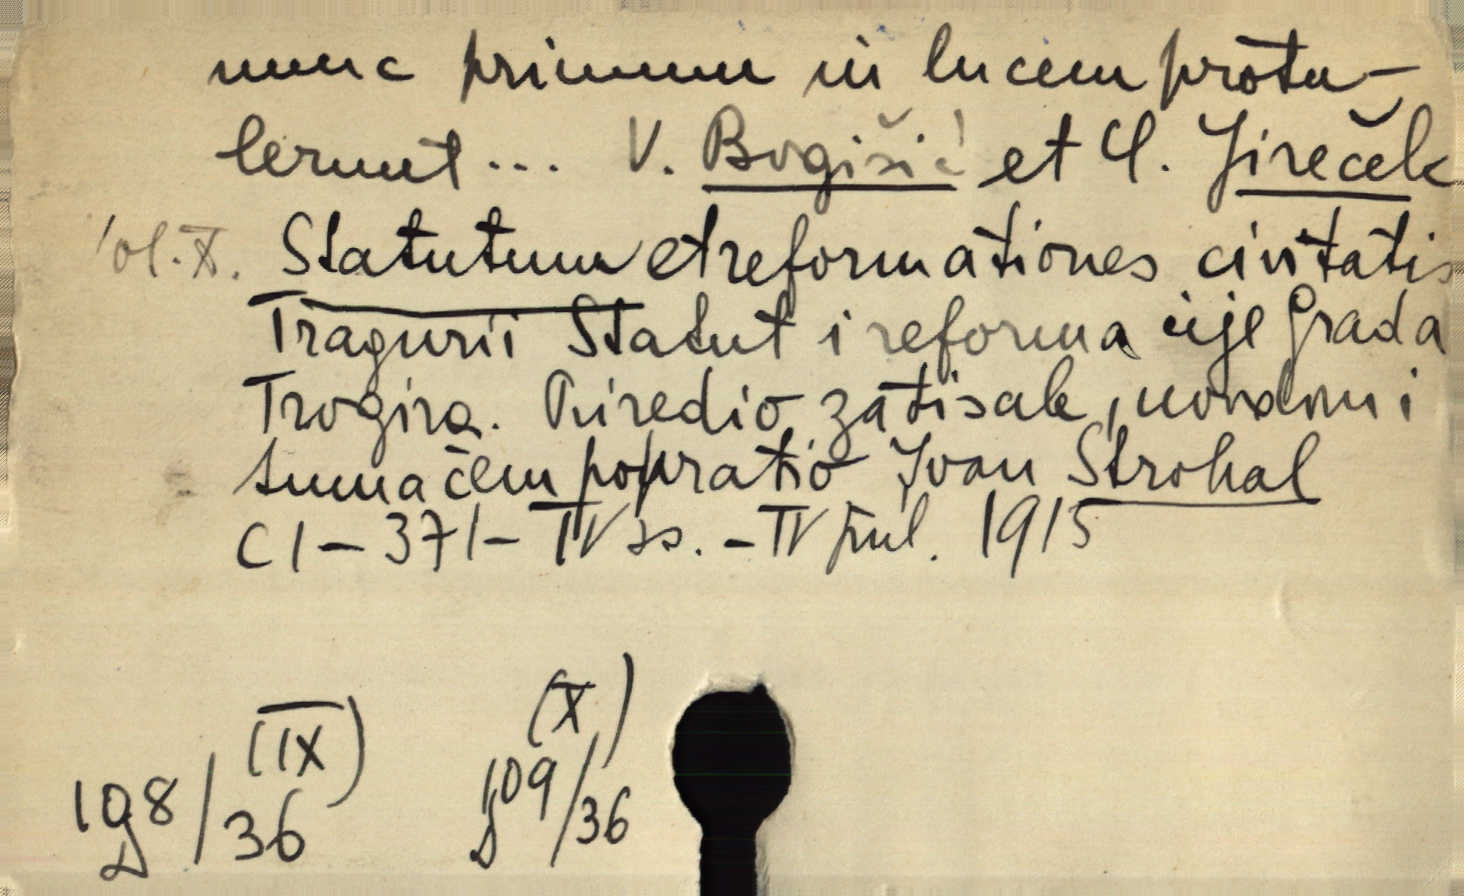 nunc primum in lucem protu-
lerunt... V. Bogišić et C. Jireček
Vol. X. Statutum et reformationes civitatis
Tragurii Statut i reformacije grada
Trogira. Priredio, zatisak, uvodom i
tumačem popratio Ivan Strohal
CI-371-IV ss. -IV pril. 1915
(IX) (X)
198/36 109/36